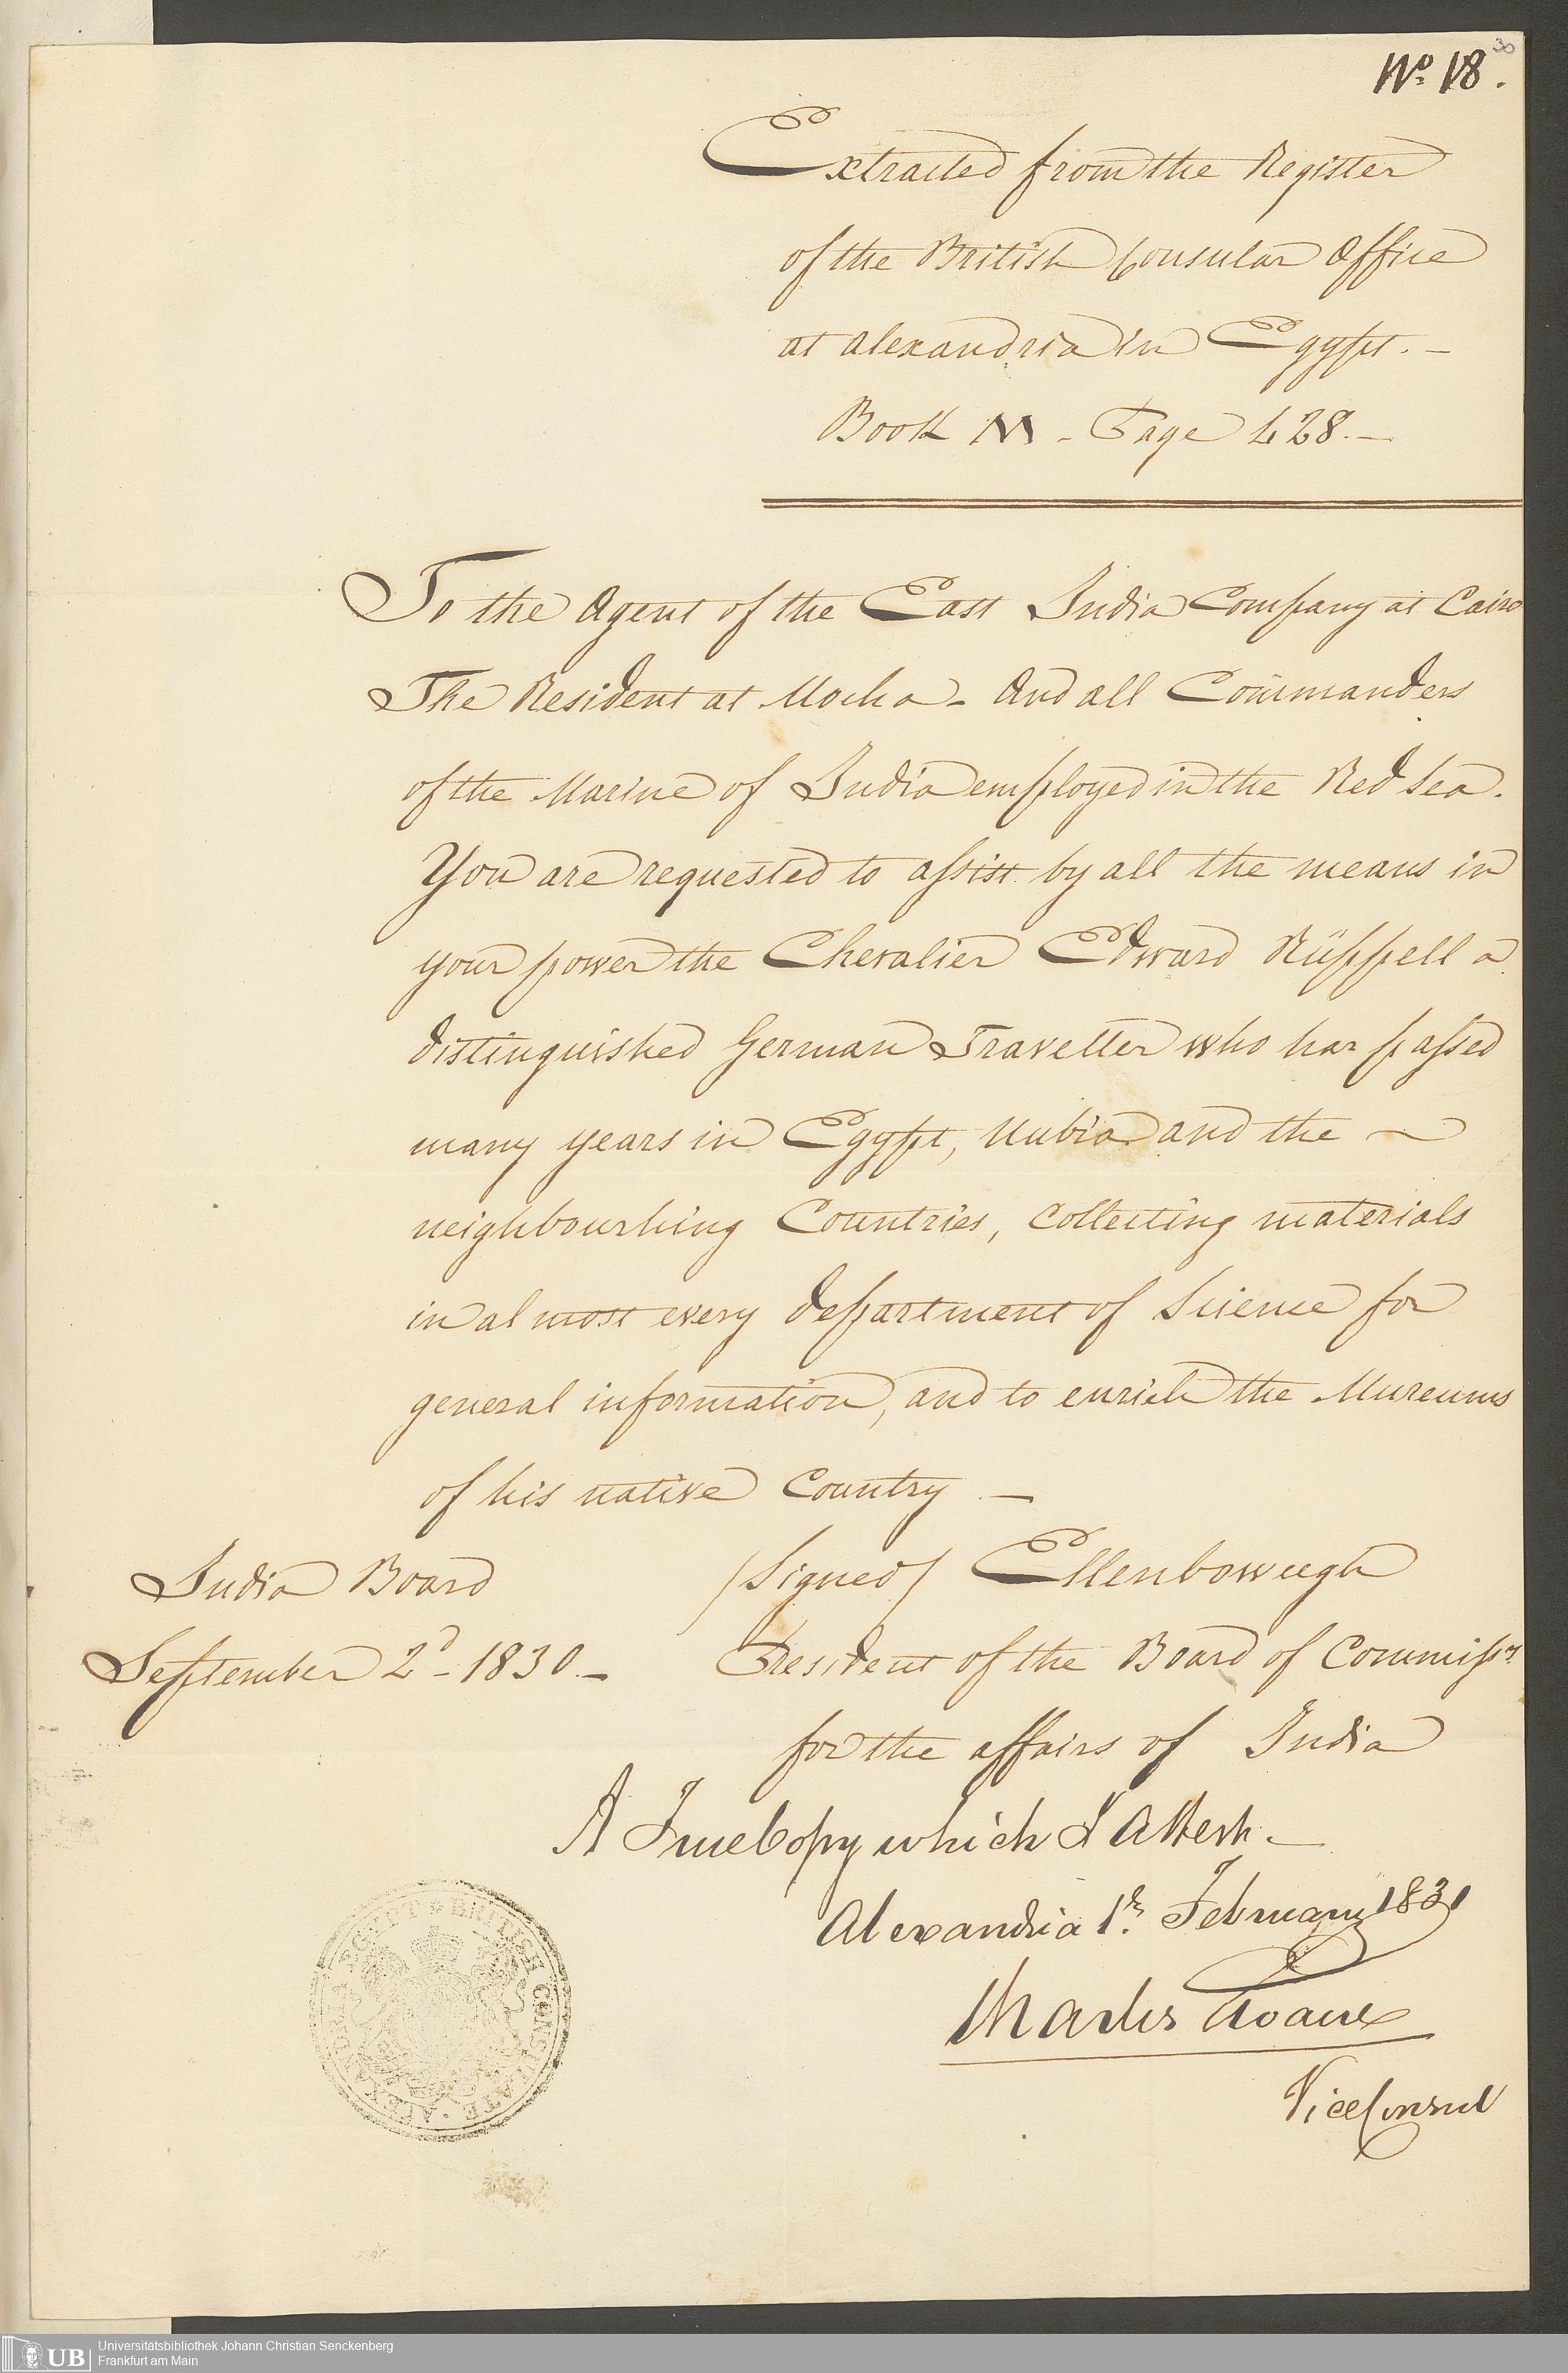 30
No. 18.
Extracted from the Register
of the British Consular Office
at Alexandria in Egypt. —
Book M - Page 428. —
To the Agent of the East India Company at Cairo
The Resident at Mocha - And all Commanders
of the Marine of India employed in the Red Sea.
You are requested to assist by all the means in
your power the Chevalier Edward Rüppell a
distinguished German Traveller who has passed
many years in Egypt, Nubia and the ~
neighbourhing Countries, collecting materials
in almost every department of Science for
general information, and to enrich the Museums
of his native Country —
India Board
September 2d - 1830 —
(Signed) Ellenbowugh
President of the Board of Commissrs
for the affairs of India
A True Copy which I Attest. —
Alexandria 1st February 1831
Charles
Vice Consul
ALEXANDRIA EGYPT * BRITISH CONSULATE
UB
Universitätsbibliothek Johann Christian Senckenberg
Frankfurt am Main